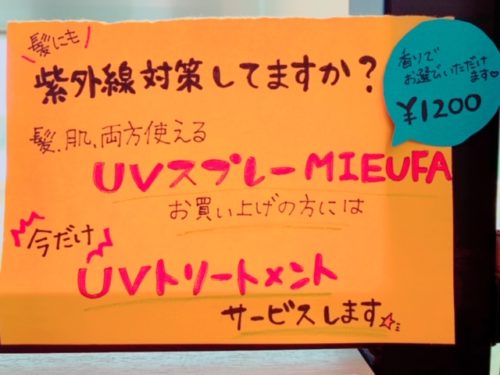 髪にも
紫外線対策してますか?
香りで
お選びいただけ
ます♡
¥1200
髪、肌、両方使える
UVスプレーMIEUFA
お買い上げの方には
今だけ
UVトリートメント
サービスします☆